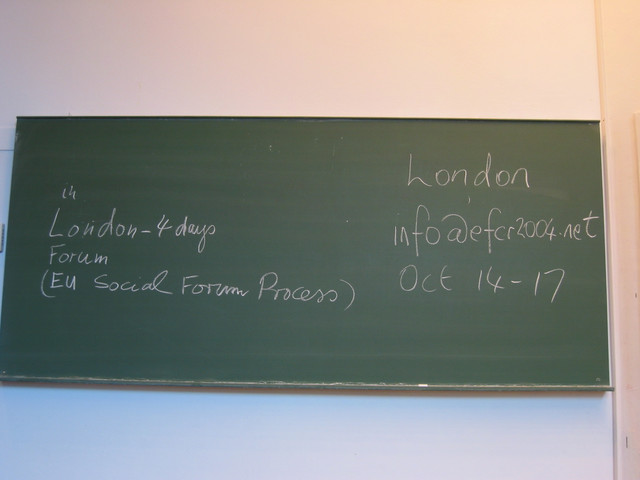 in
London - 4 days
Forum
(EU Social Forum Process)
London
info@efcr2004.net
Oct 14-17